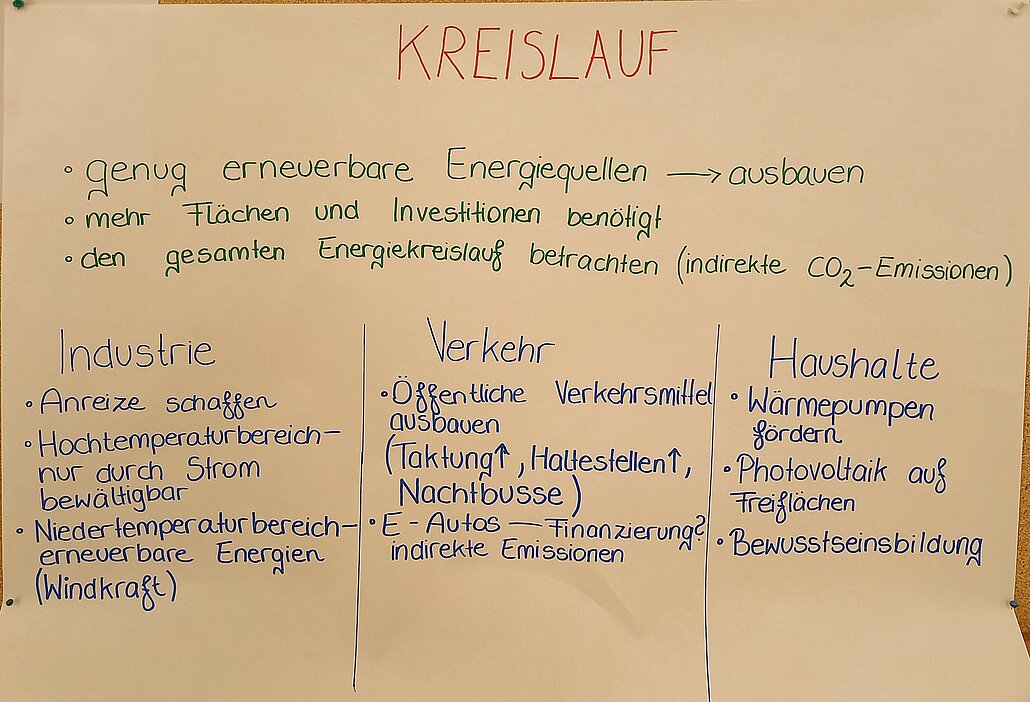 KREISLAUF
◦ genug erneuerbare Energiequellen → ausbauen
◦ mehr Flächen und Investitionen benötigt
◦ den gesamten Energiekreislauf betrachten (indirekte CO₂-Emissionen)
Industrie
◦ Anreize schaffen
◦ Hochtemperaturbereich-
nur durch Strom
bewältigbar
◦ Niedertemperaturbereich-
erneuerbare Energien
(Windkraft)
Verkehr
◦ Öffentliche Verkehrsmittel
ausbauen
(Taktung↑, Haltestellen↑,
Nachtbusse)
◦ E-Autos — Finanzierung?
indirekte Emissionen
Haushalte
◦ Wärmepumpen
fördern
◦ Photovoltaik auf
Freiflächen
◦ Bewusstseinsbildung